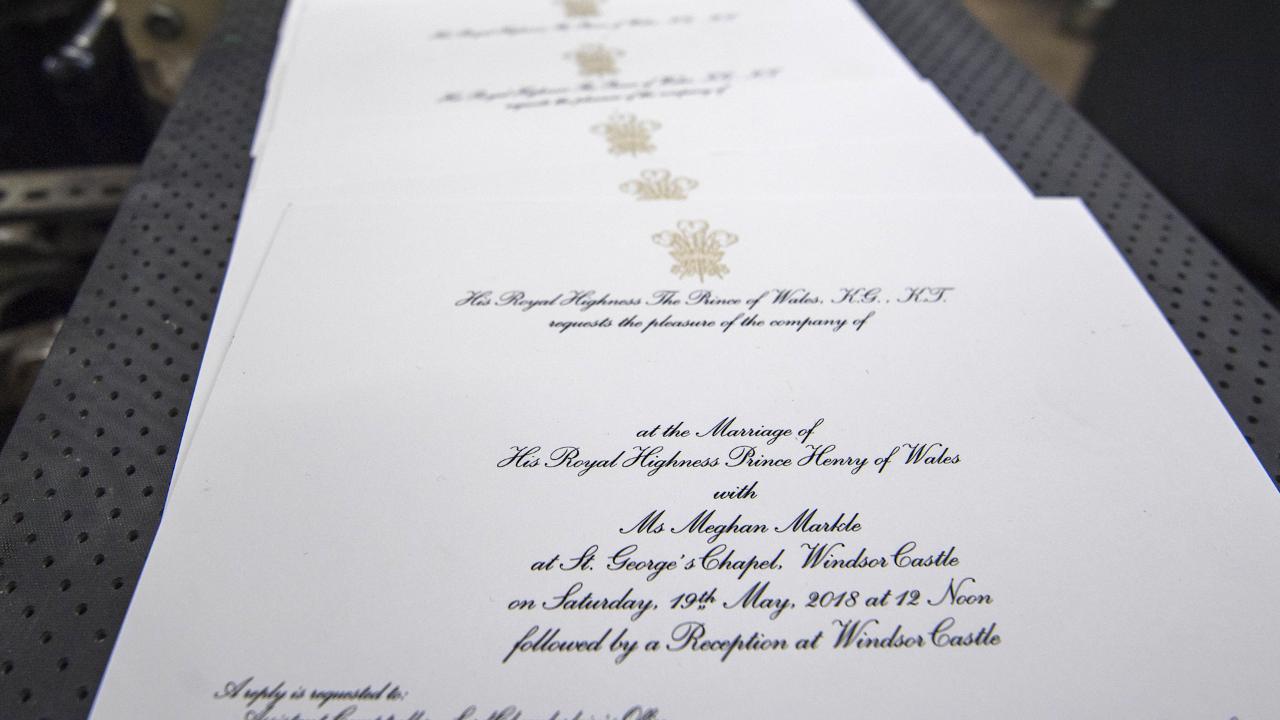 His Royal Highness The Prince of Wales, K.G., K.T.
His Royal Highness The Prince of Wales, K.G., K.T.
requests the pleasure of the company of
His Royal Highness The Prince of Wales, K.G., K.T.
requests the pleasure of the company of
at the Marriage of
His Royal Highness Prince Henry of Wales
with
Ms Meghan Markle
at St. George's Chapel, Windsor Castle
on Saturday, 19th May, 2018 at 12 Noon
followed by a Reception at Windsor Castle
A reply is requested to: